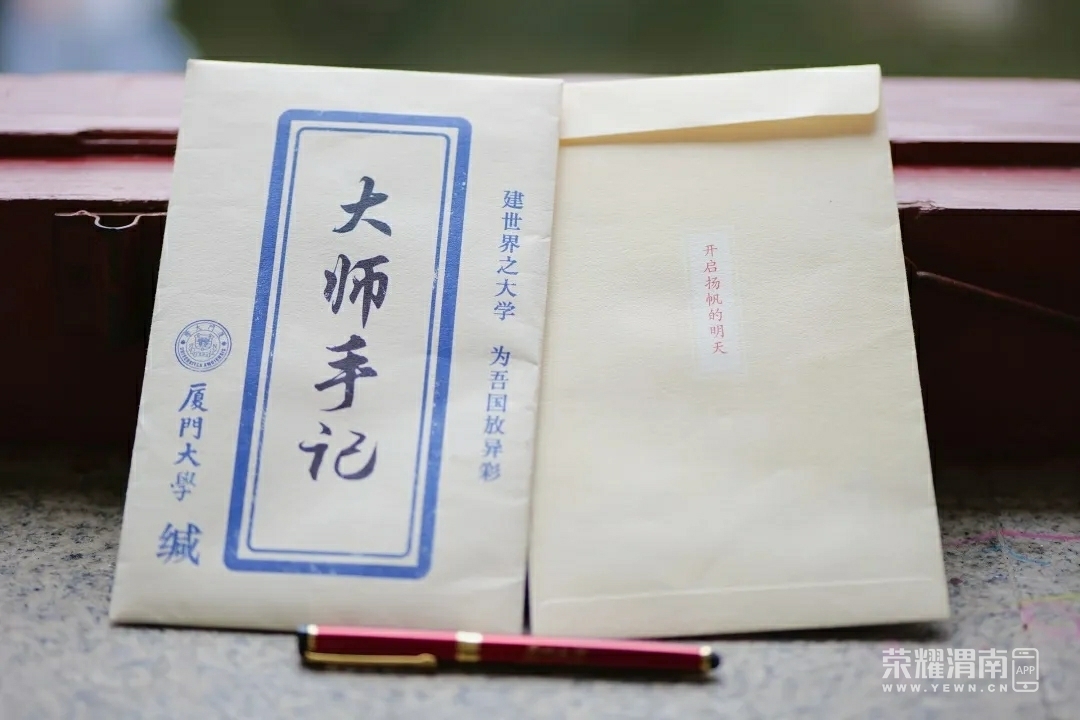 建世界之大学 为吾国放异彩
大师手记
厦門大學 缄
开启扬帆的明天
荣耀渭南 APP
WWW.YEWN.CN